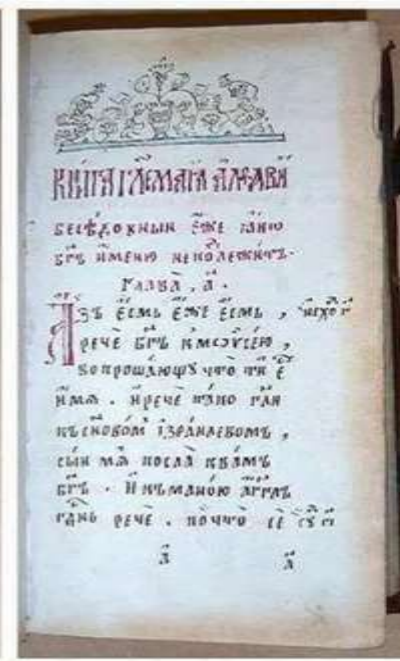 КНИ́ГА ГЛЕ҃МАѦ А҆ЛѲАВИ҃
бесѣ́довныи є҆́же та́ко
бг҃ъ и҆́менꙋ неподлежи́тъ·
глава̀ , а҃ ·
А҆́зъ є҆́смь є҆́же є҆́смь ,
речѐ бг҃ъ к моѷсе́ю ,
вопроша́ющꙋ что̀ ти є҆
и҆́мѧ . и҆ речѐ та́ко гл҃и
къ сн҃овом і҆зра́илевомъ ,
сы́и мѧ посла̀ к ва́мъ
бг҃ъ . и҆ къ мано́ю а҆́гг҃лъ
гд҃нь речѐ . по что̀
а҃ а҃